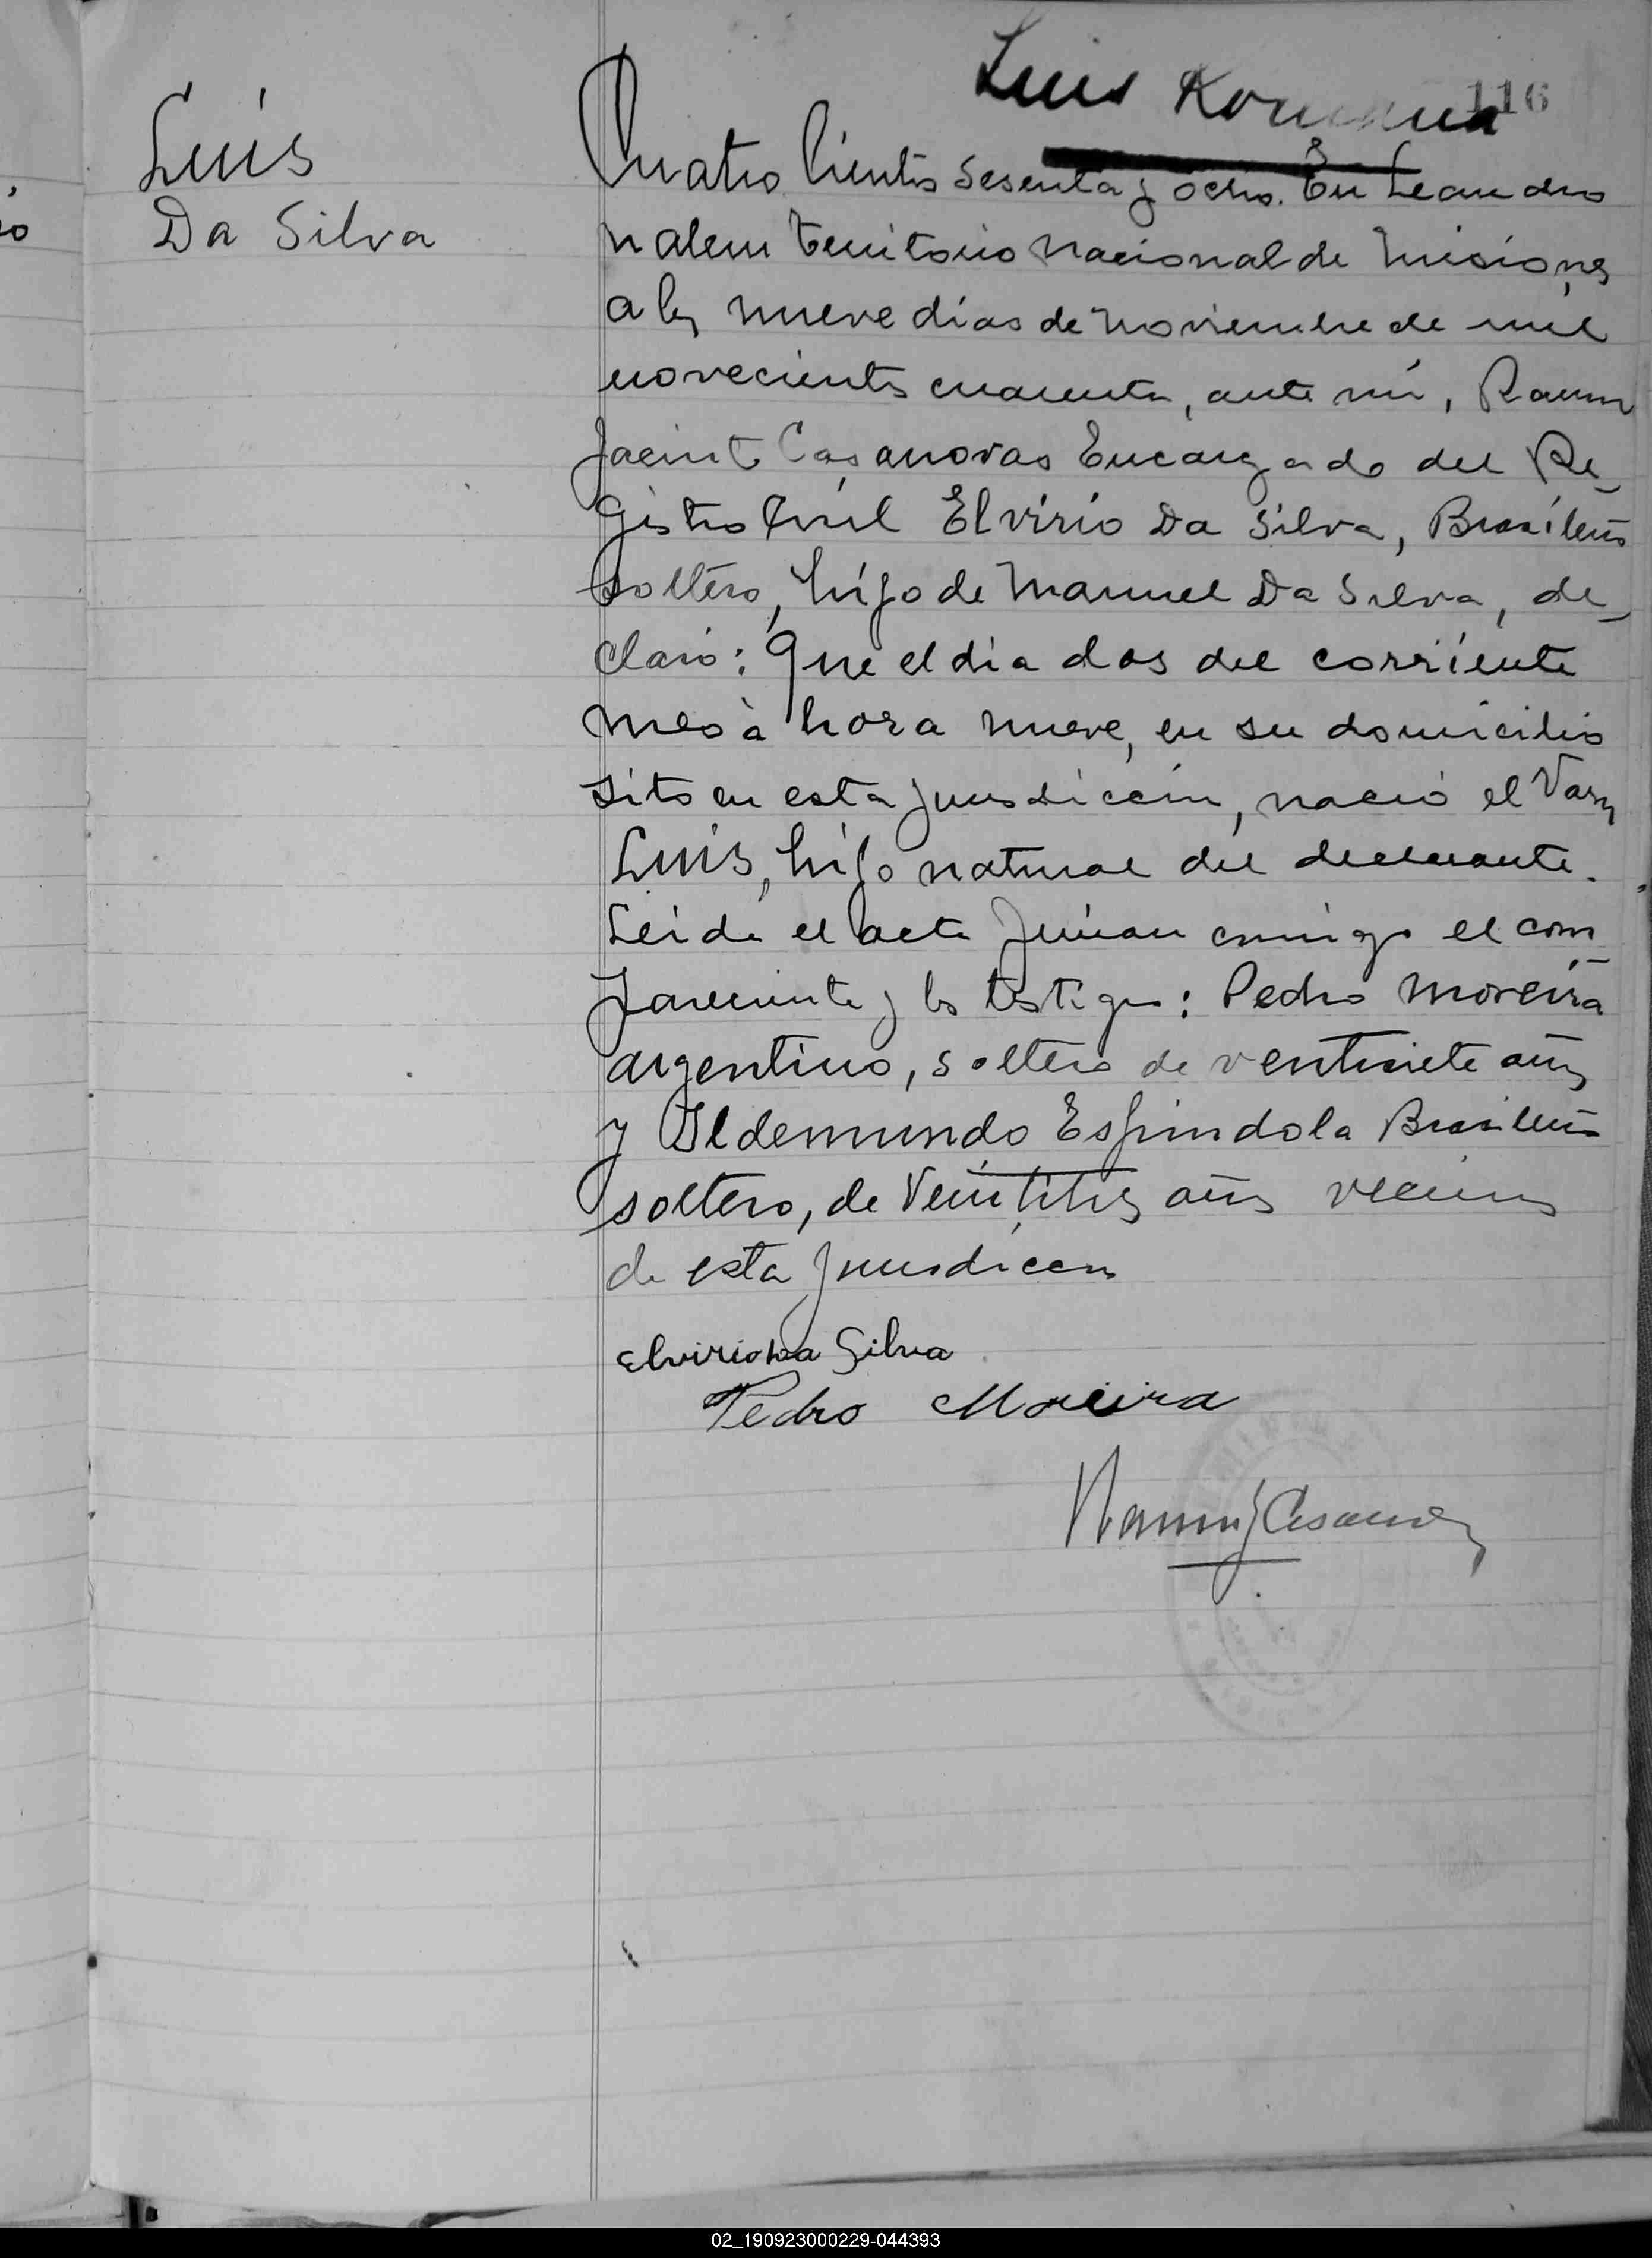 Luis
116
Luis
Da Silva
Cuatro Cientos Sesenta y ocho. En Leandro
n alem territorio nacional de misiones
a los nueve días de noviembre de mil
novecientos cuarenta, ante mí, Ramon
Jacinto Casanovas Encargado del Re_
gistro Civil Elvirio Da Silva, Brasileño
soltero, hijo de Manuel Da Silva, de_
claró: Que el día dos del corriente
mes à hora nueve, en su domicilio
sito en esta jurisdiccion, nació el Varon
Luis, hijo natural del declarante.
Leida el acta firman conmigo el com_
pareciente y los testigos: Pedro Moreira
argentino, soltero de ventisiete años
y Ildemundo Espindola Brasileño
soltero, de Veintitres años vecinos
de esta jurisdiccion
Elvirio Da Silva
Pedro Moreira
Ramon J Casanovas
02_190923000229-044393